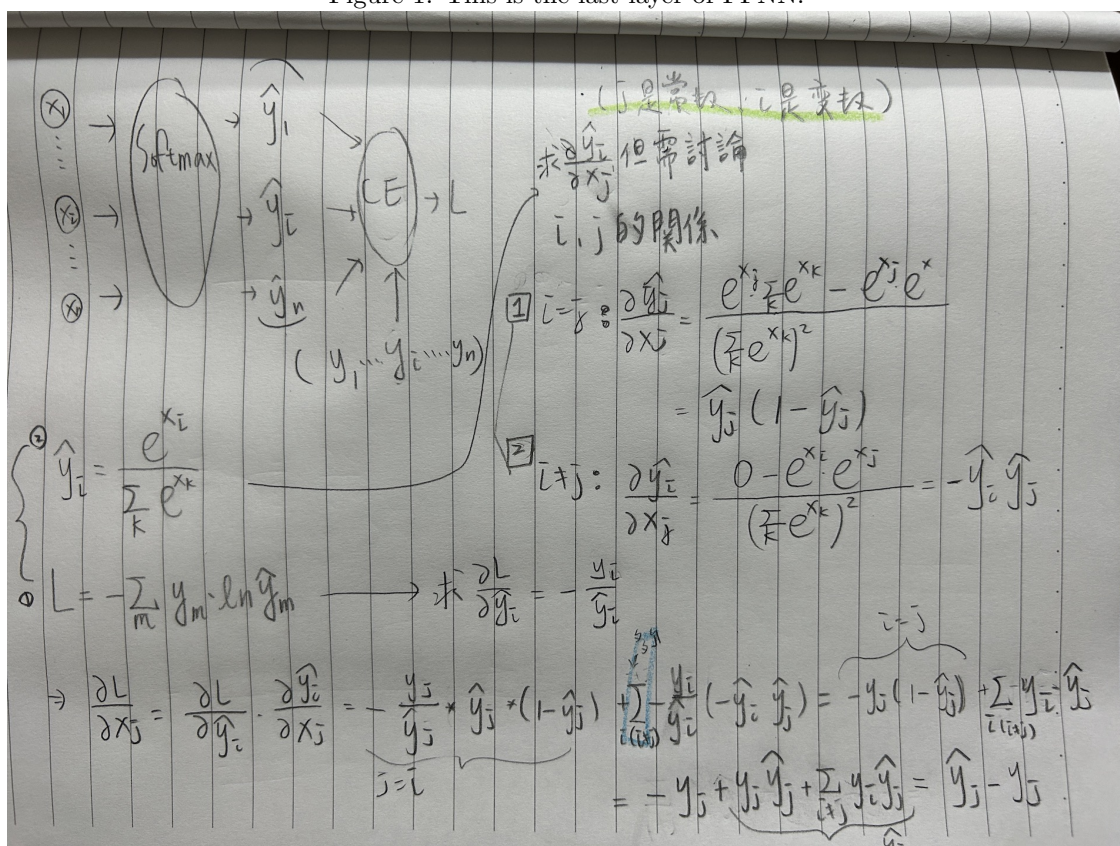 Figure 1: This is the last layer of FFNN.
x₁ → Softmax → ŷ₁
xᵢ → → ŷᵢ → CE → L
xₙ → → ŷₙ
(y₁ ... yᵢ ... yₙ)
(j是常数, i是变数)
求 ∂ŷᵢ/∂xⱼ 但需討論
i, j 的關係
1 i=j: ∂ŷⱼ/∂xⱼ = (e^{xⱼ} Σₖ e^{xₖ} − e^{xⱼ} e^{x}) / (Σₖ e^{xₖ})²
= ŷⱼ (1 − ŷⱼ)
2 i≠j: ∂ŷᵢ/∂xⱼ = (0 − e^{xᵢ} e^{xⱼ}) / (Σₖ e^{xₖ})² = −ŷᵢ ŷⱼ
② ŷᵢ = e^{xᵢ} / Σₖ e^{xₖ}
① L = −Σₘ yₘ · ln ŷₘ → 求 ∂L/∂ŷᵢ = − yᵢ/ŷᵢ
→ ∂L/∂xⱼ = ∂L/∂ŷᵢ · ∂ŷᵢ/∂xⱼ = − yⱼ/ŷⱼ * ŷⱼ * (1−ŷⱼ) + Σ_{i(i≠j)} − yᵢ/ŷᵢ (−ŷᵢ ŷⱼ) = −yⱼ(1−ŷⱼ) + Σ_{i(i≠j)} yᵢ · ŷⱼ
j=i
i=j
= −yⱼ + yⱼŷⱼ + Σ_{i≠j} yᵢŷⱼ = ŷⱼ − yⱼ